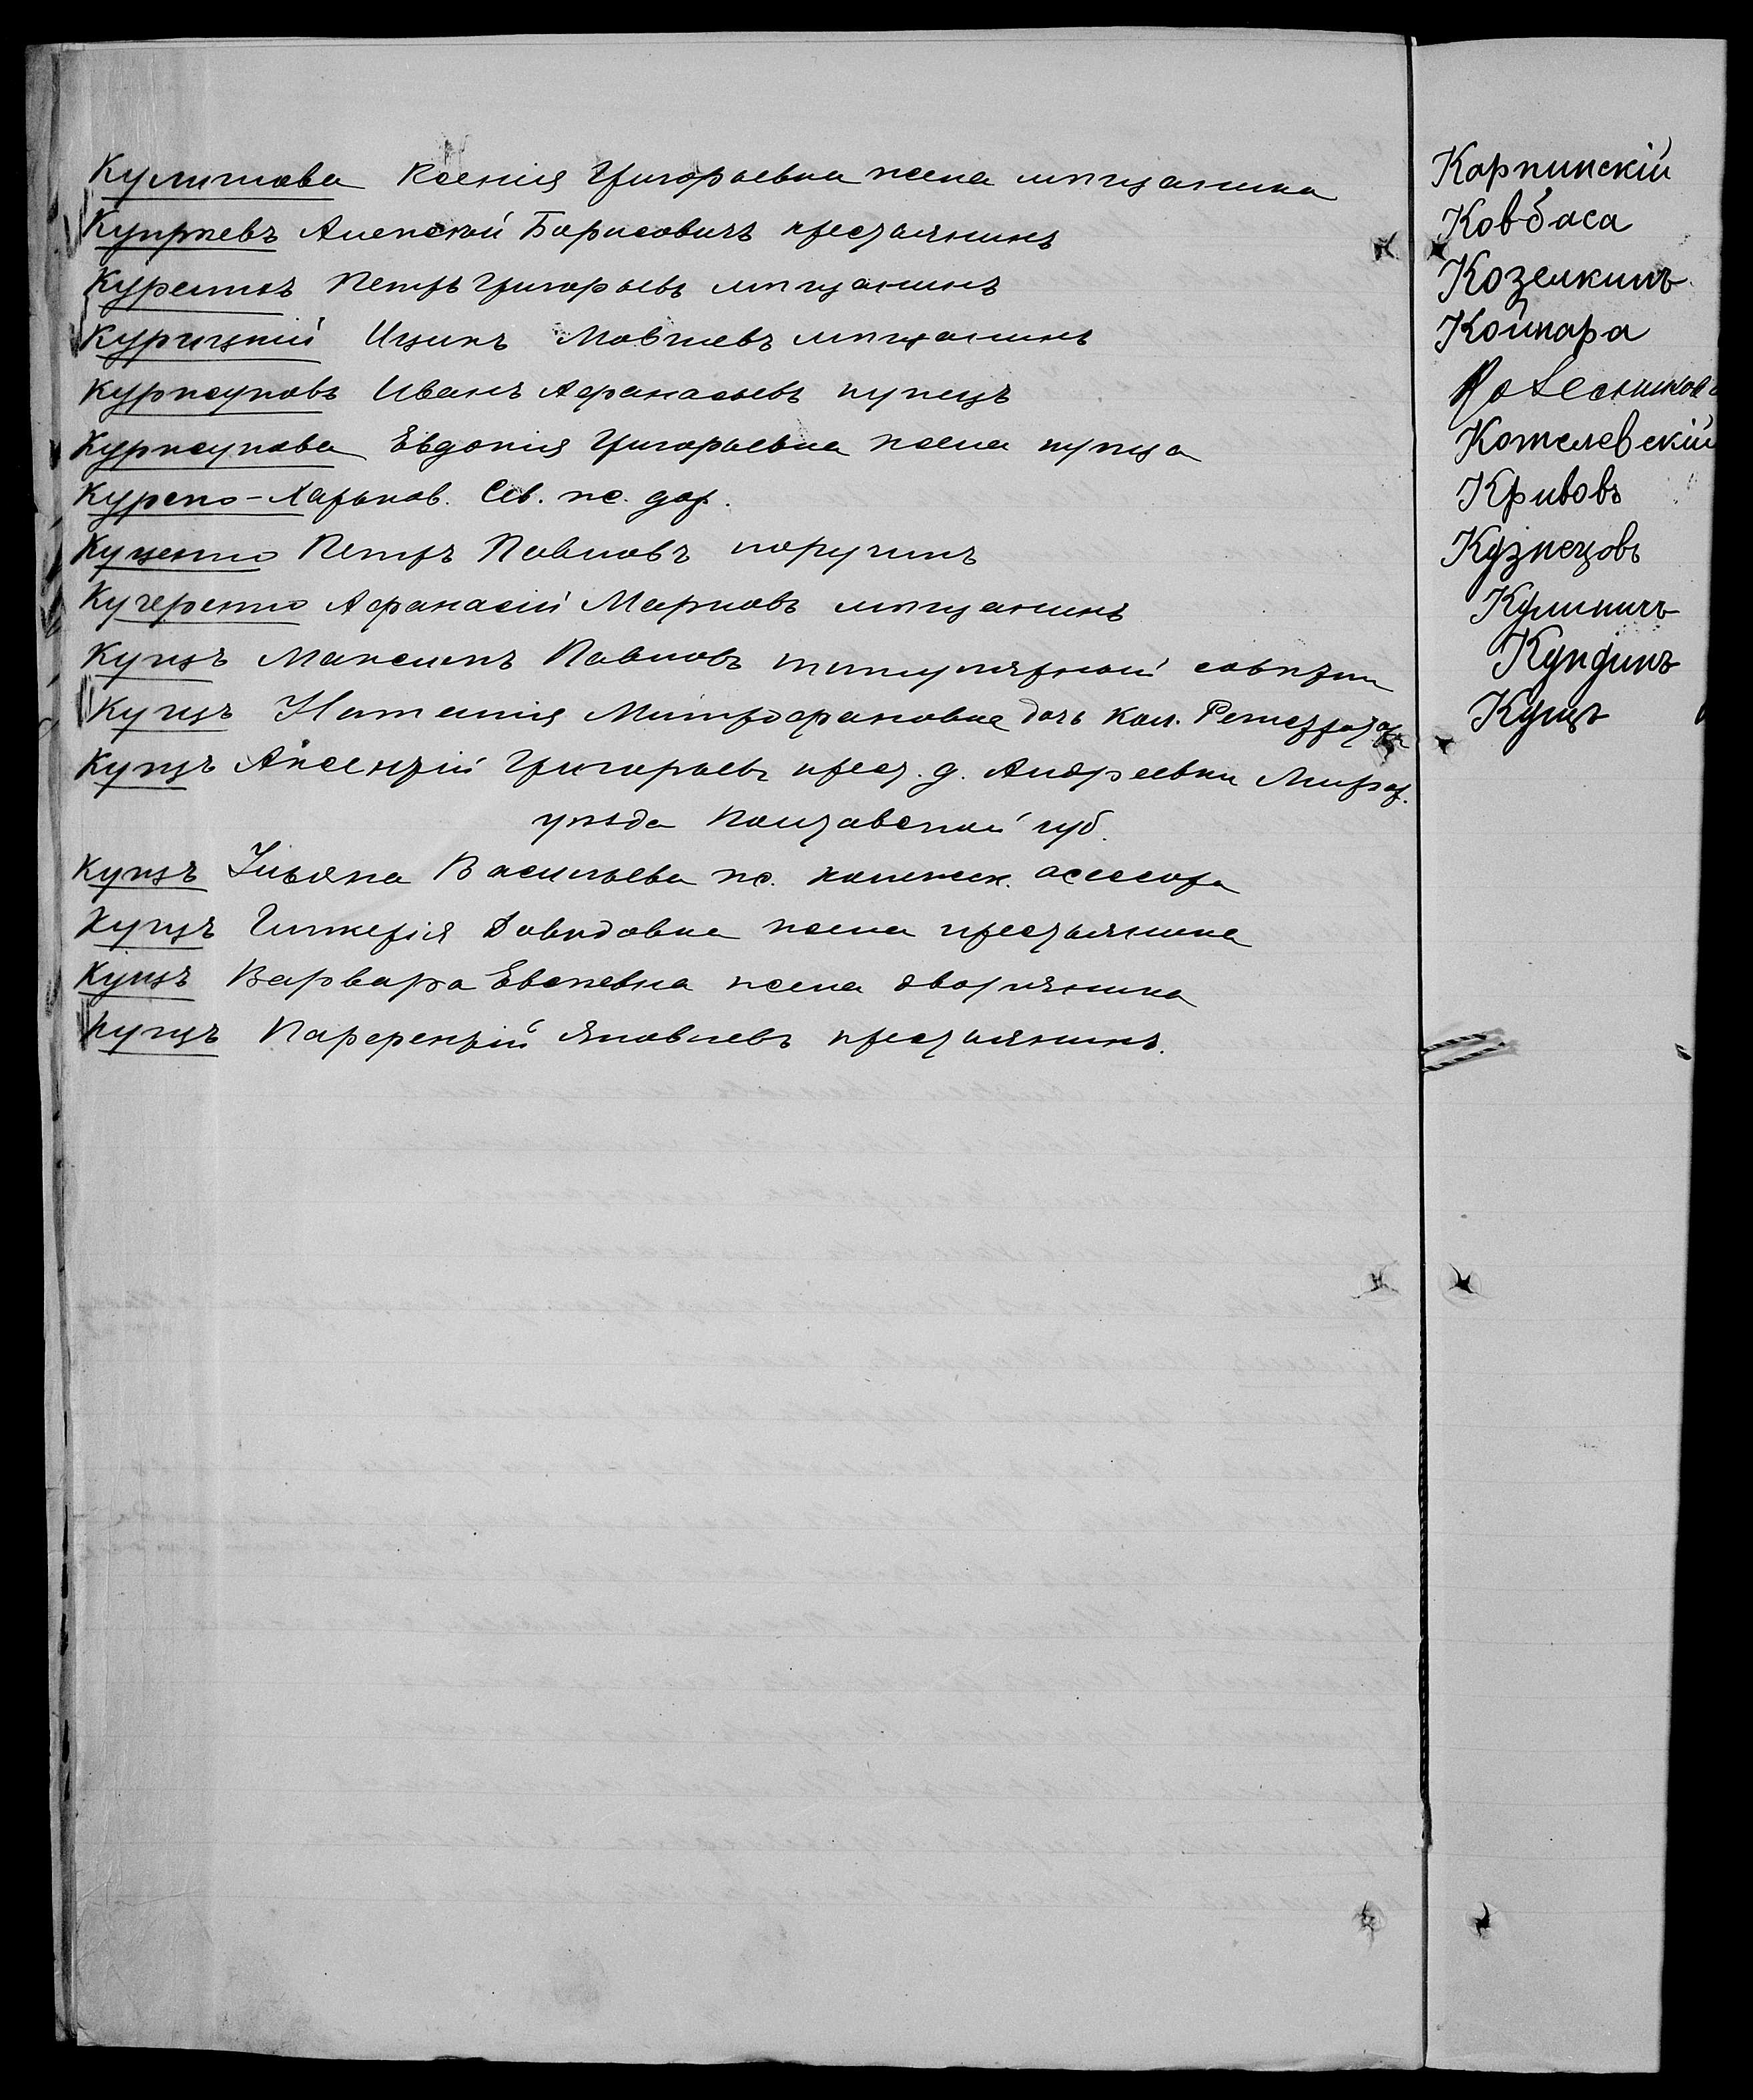 Кулишова Ксенія Григорьевна жена мѣщанина
Купріевъ Алексѣй Борисовичъ крестьянинъ
Петръ Григорьевъ мѣщанинъ
Курицкій Ицикъ Мовшевъ мѣщанинъ
Курпсуновъ Иванъ Афанасьевъ купецъ
Курпсунова Евдокія Григорьевна жена купца
Курско-Харьков. Сев. ж. дор.
Куценко Петръ Павловъ поручикъ
Кучеренко Афанасій Марковъ мѣщанинъ
Куцъ Максимъ Павловъ титулярный совѣтн
Куцъ Наталія Митрофановна дочь Кол. Регистратора
Куцъ Аксентій Григорьевъ крест. д. Андреевки Миргор.
уѣзда Полтавской губ.
Куцъ Ульяна Васильева ж. коллежск. асессора
Куцъ Гликерія Давидовна жена крестьянина
Куцъ Варвара Евсеевна жена дворянина
Куцъ Парфентій Яковлевъ крестьянинъ.
Карпинскій
Ковбаса
Козелкинъ
Койнара
Колесникова
Котелевскій
Кривовъ
Кузнецовъ
Кулиничъ
Кундинъ
Куцъ